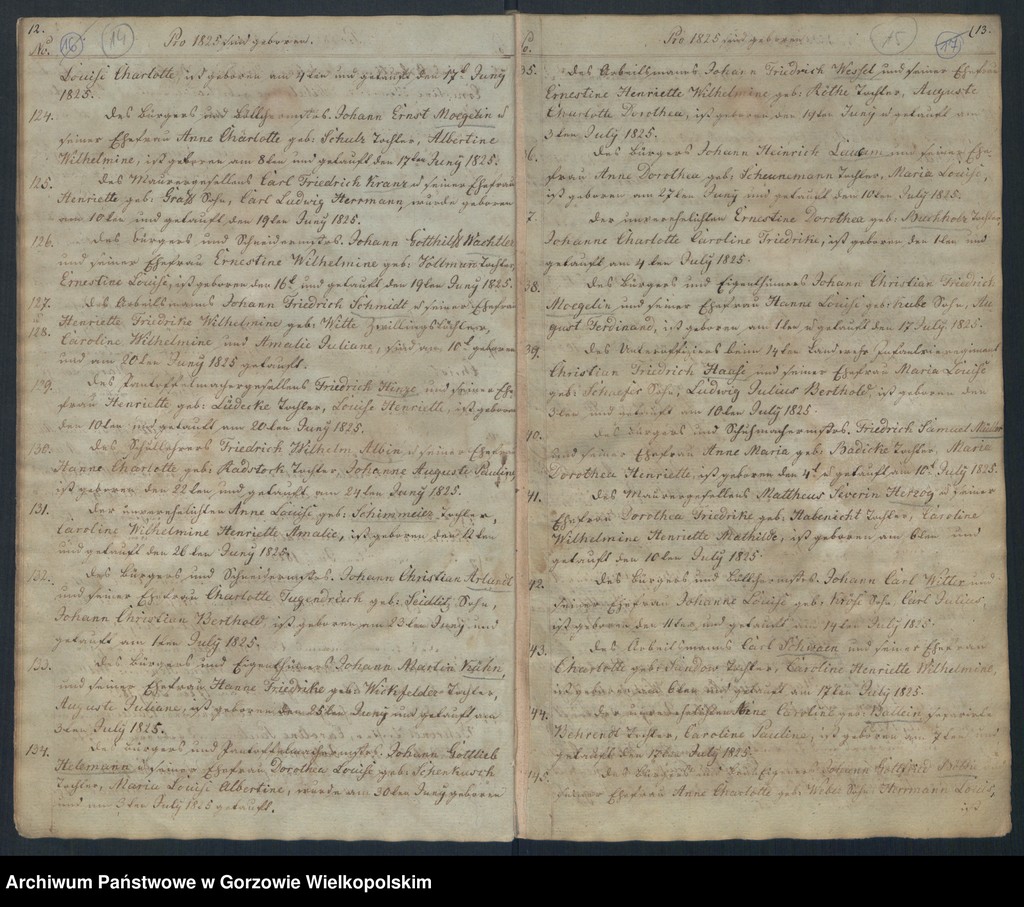 12.
No.
16
14
Pro 1825 sind geboren.
Louise Charlotte, ist geboren am 4ten und getauft den 17t Juny
1825.
124. Des Bürgers und Mstrs. Johann Ernst Moegelin u
seiner Ehefrau Anne Charlotte geb: Schulz Tochter, Albertine
Wilhelmine, ist geboren am 8ten und getauft den 17ten Juny 1825.
125. Des Maurergesellens Carl Friedrich Kranz u seiner Ehefrau
Henriette geb: Graß Sohn, Carl Ludwig Herrmann, wurde geboren
am 10ten und getauft den 19ten Juny 1825.
126. Des Bürgers und Schneidermstrs. Johann Gotthilff Wachtler
und seiner Ehefrau Ernestine Wilhelmine geb: Tochter,
Ernestine Louise, ist geboren den 16t und getauft den 19ten Juny 1825.
127. Des Arbeitsmanns Johann Friedrich Schmidt u seiner Ehefrau
Henriette Friedrike Wilhelmine geb: Witte Zwillingstöchter,
128. Caroline Wilhelmine und Amalie Juliane, sind am 10t geboren
und am 20ten Juny 1825 getauft.
129. Des Pantoffelmachergesellens Friedrich Hinze und seiner Ehe-
frau Henriette geb: Lüdecke Tochter, Louise Henriette, ist geboren
den 10ten und getauft am 20ten Juny 1825.
130. Des Schullehrers Friedrich Wilhelm Albin u seiner Ehefrau
Hanne Charlotte geb: Radstock Tochter, Johanne Auguste Pauline
ist geboren den 22ten und getauft am 24ten Juny 1825.
131. Der unverehelichten Anne Louise geb: Schimmeier Tochter,
Caroline Wilhelmine Henriette Amalie, ist geboren den 12ten
und getauft den 26ten Juny 1825.
132. Des Bürgers und Schneidermstrs. Johann Christian Arlandt
und seiner Ehefrau Charlotte Tugendreich geb: Seidlitz Sohn,
Johann Christian Berthold, ist geboren am 23ten Juny und
getauft am 1ten July 1825.
133. Des Bürgers und Eigenthümers Johann Martin Kühn,
und seiner Ehefrau Hanne Friedrike geb: Wirkfelder Tochter,
Auguste Juliane, ist geboren den 25ten Juny und getauft am
3ten July 1825.
134. Des Bürgers und Pantoffelmachermstrs. Johann Gottlieb
Helemann u seiner Ehefrau Dorothea Louise geb: Schenkusch
Tochter, Maria Louise Albertine, wurde am 30ten Juny geboren
und am 3ten July 1825 getauft.
13.
15
17
Pro 1825 sind geboren
35. Des Arbeitsmanns Johann Friedrich Wessel und seiner Ehefrau
Ernestine Henriette Wilhelmine geb: Röthe Tochter, Auguste
Charlotte Dorothea, ist geboren den 19ten Juny u getauft am
3ten July 1825.
6. Des Bürgers Johann Heinrich und seiner Ehe-
frau Anne Dorothea geb: Scheunemann Tochter, Maria Louise,
ist geboren am 27ten Juny und getauft den 10ten July 1825.
7. Der unverehelichten Ernestine Dorothea geb: Buchholz Tochter,
Johanne Charlotte Caroline Friedrike, ist geboren den 1ten und
getauft am 4ten July 1825.
38. Des Bürgers und Eigenthümers Johann Christian Friedrich
Moegelin, und seiner Ehefrau Hanne Louise geb: Sohn, Au-
gust Ferdinand, ist geboren am 1ten u getauft den 17 July 1825.
39. Des Unterofficiers beim 14ten Landwehr Infanterieregiment
Christian Friedrich Haase und seiner Ehefrau Maria Louise
geb: Schaefer Sohn, Ludwig Julius Berthold, ist geboren den
und getauft am 10ten July 1825.
40. Des Bürgers und Schuhmachermstrs. Friedrich Samuel
und seiner Ehefrau Anne Maria geb: Badicke Tochter, Maria
Dorothea Henriette, ist geboren den 4t u getauft am 10t July 1825.
41. Des Maurergesellens Mattheus Severin Herzog u seiner
Ehefrau Dorothea Friedrike geb: Habenicht Tochter, Caroline
Wilhelmine Henriette Mathilde, ist geboren am 6ten und
getauft den 10ten July 1825.
42. Des Bürgers und Mstrs. Johann Carl Witter und
seiner Ehefrau Johanne Louise geb: Sohn, Carl Julius,
ist geboren den 11ten und getauft am 14ten July 1825.
43. Des Arbeitsmanns Carl Schwaen und seiner Ehefrau
Charlotte geb: Sandow Tochter, Caroline Henriette Wilhelmine,
ist geboren am 6ten und getauft am 17ten July 1825.
44. Der unverehelichten Caroline geb: Ballein separirte
Behrend Tochter, Caroline Pauline, ist geboren am 7ten und
getauft den 17ten July 1825.
145. Des Bürgers und Johann Gottfried
seiner Ehefrau Anne Charlotte geb: Weber Sohn, Herrmann Louis,
ist
Archiwum Państwowe w Gorzowie Wielkopolskim